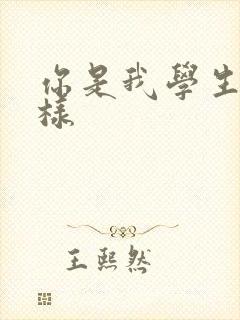 你是我學生
樣
王熙然